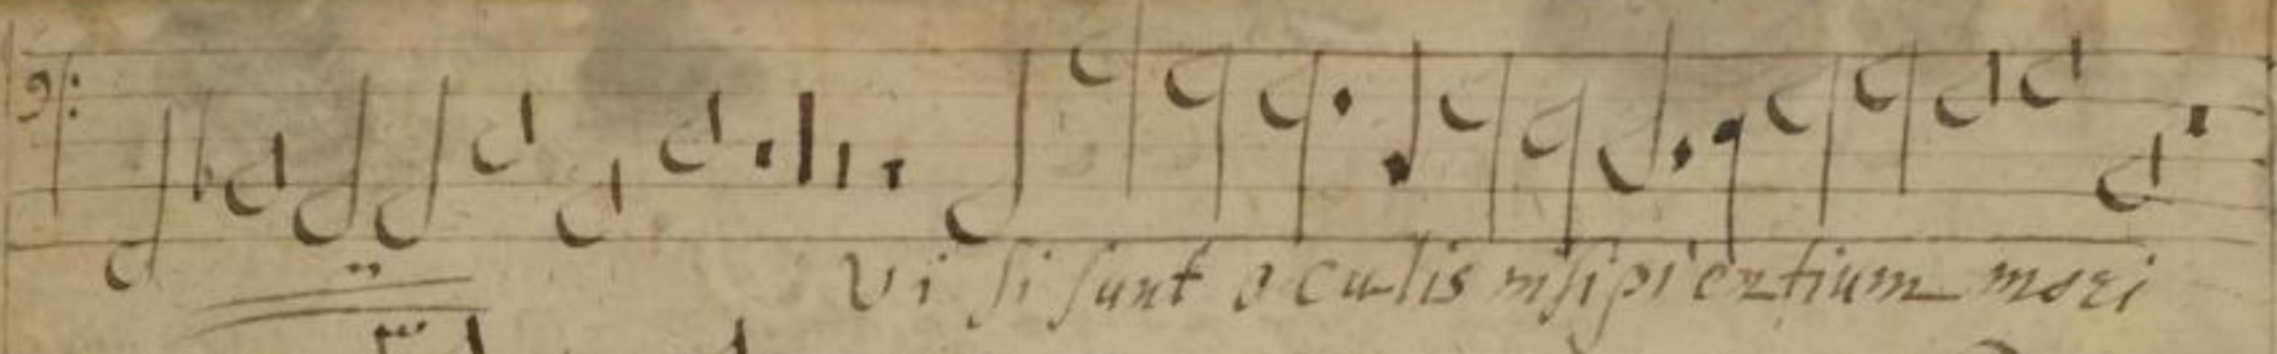 Vi si sunt oculis insipientium mori